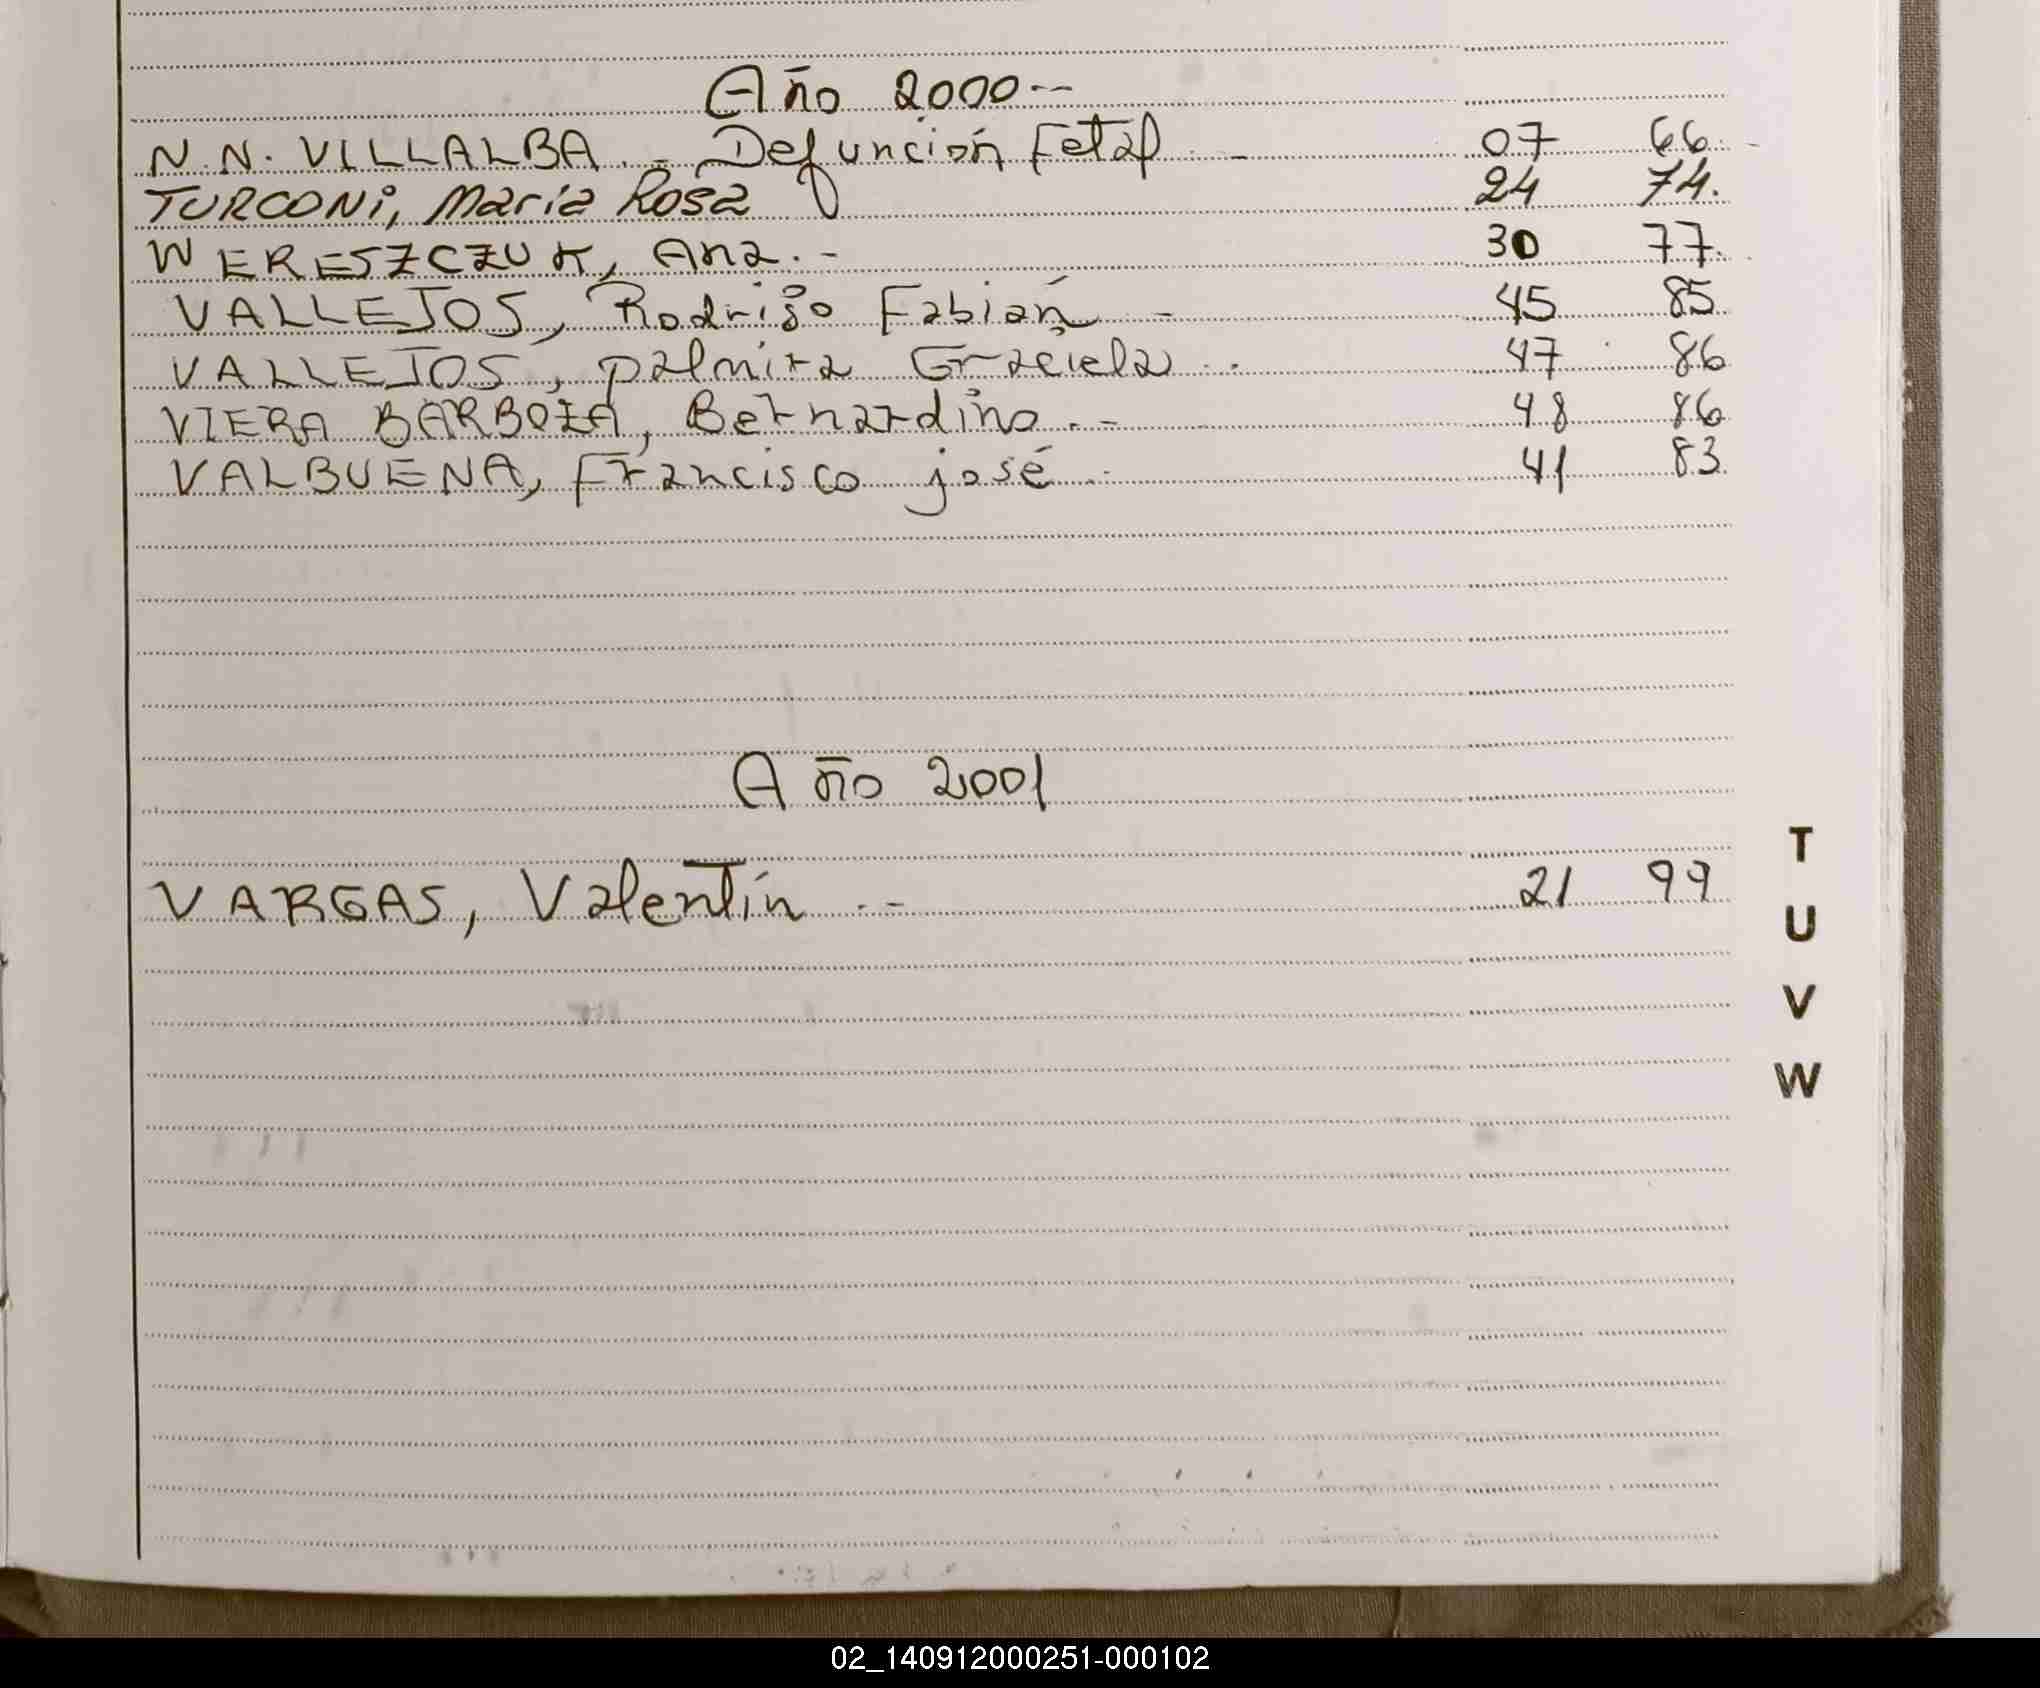 Año 2000--
N.N. VILLALBA.- Defunción Fetal - 07 66.-
TURCONi, María Rosa 24 74.
WERESZCZUK, Ana.- 30 77.
VALLEJOS, Rodrigo Fabián - 45 85
VALLEJOS, palmira Graciela.. 47 86
VIERA BARBOZA, Bernardino.- 48 86
VALBUENA, Francisco josé. 41 83
Año 2001
VARGAS, Valentín.-- 21 99
T
U
V
W
02_140912000251-000102